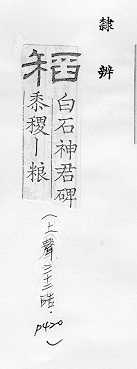 隸辨
稻
白石神君碑
黍稷丨粮
（上聲三十二晧．P420）